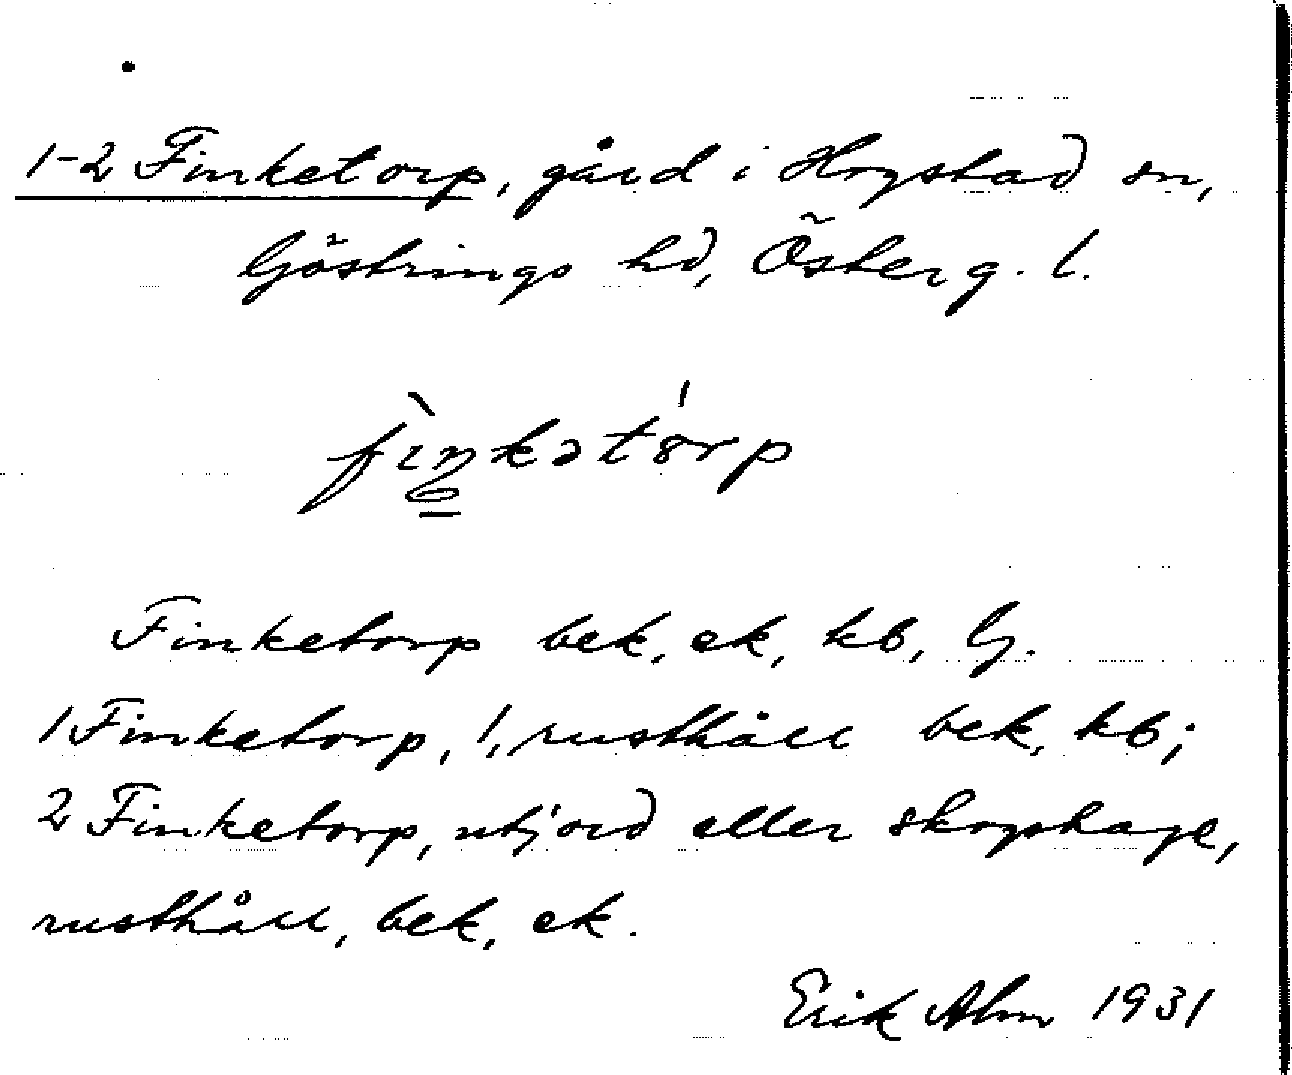 1-2 Finketorp, gård i Hogstad sn,
Göstrings hd, Österg. l.
fìŋkətórp
Finketorp bek, ek, kb, G.
1 Finketorp, 1, rusthåll bek, kb;
2 Finketorp, utjord eller skogshage,
rusthåll, bek, ek.
Erik Alm 1931